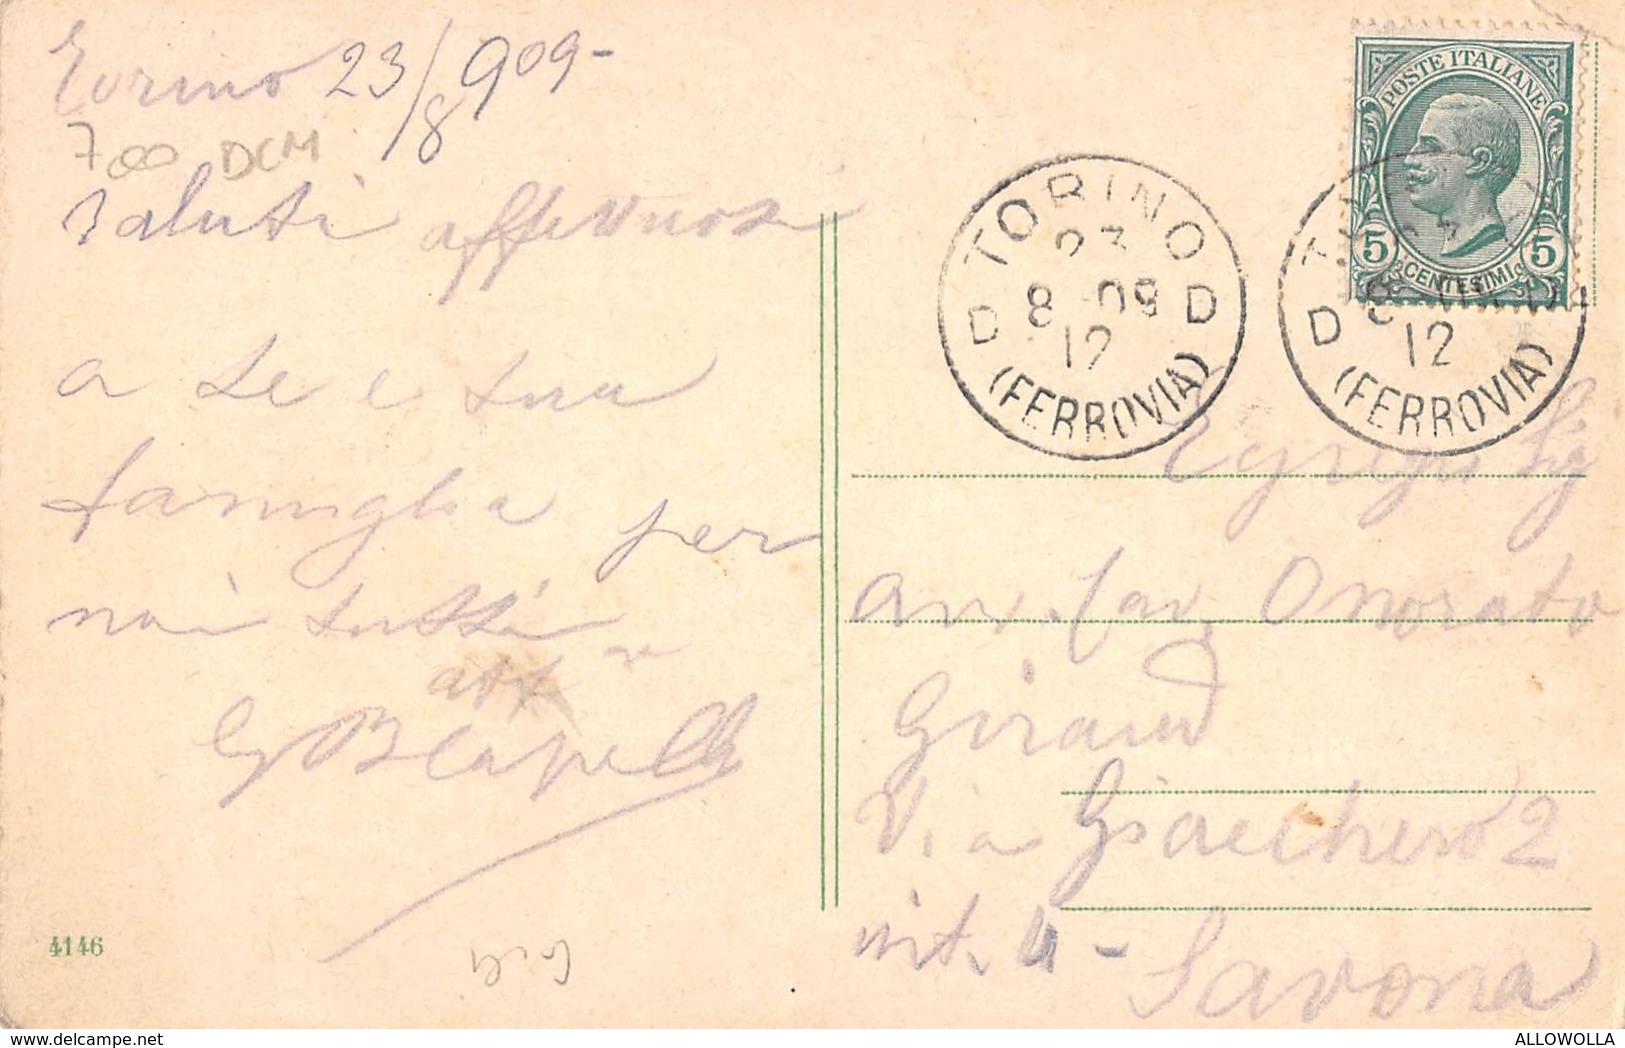 Torino 23/8 909-
700 DCM
Saluti affettuosi
a te e tua
famiglia per
noi tutti
aff
4146
POSTE ITALIANE
5 5
CENTESIMI
TORINO
23
8 09
12
D D
(FERROVIA)
D
12
(FERROVIA)
Egregio Sig
avv. Cav. Onorato
Giraud
Via Giacchero 2
int. 4 -
Savona
www.delcampe.net
ALLOWOLLA